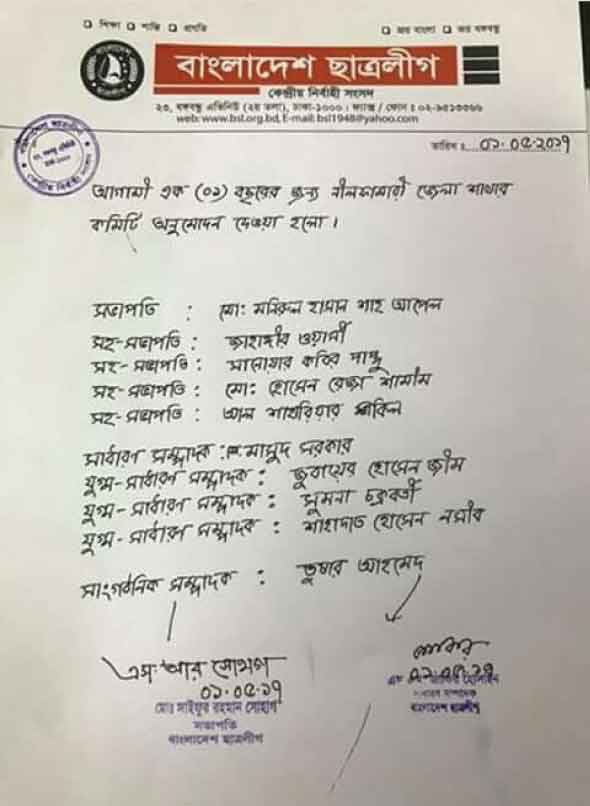 ❑ শিক্ষা ❑ শান্তি ❑ প্রগতি ❑ জয় বাংলা ❑ জয় বঙ্গবন্ধু
বাংলাদেশ ছাত্রলীগ
কেন্দ্রীয় নির্বাহী সংসদ
২৩, বঙ্গবন্ধু এভিনিউ (২য় তলা), ঢাকা-১০০০। ফ্যাক্স / ফোন : ০২-৯৫১৩৩৬৬
web: www.bsl.org.bd, E-mail: bsl1948@yahoo.com
তারিখ : ০১.০৫.২০১৭
আগামী এক (০১) বছরের জন্য নীলফামারী জেলা শাখার
কমিটি অনুমোদন দেওয়া হলো।
সভাপতি : মো: মনিরুল হাসান শাহ আপেল
সহ-সভাপতি : জাহাঙ্গীর ওয়াদী
সহ-সভাপতি : সানোয়ার কবির পাপ্পু
সহ-সভাপতি : মো: হোসেন রেজা শামীম
সহ-সভাপতি : আল শাহরিয়ার শাকিল
সাধারণ সম্পাদক : মাসুদ সরকার
যুগ্ম-সাধারণ সম্পাদক : জুবায়ের হোসেন জীম
যুগ্ম-সাধারণ সম্পাদক : সুমনা চক্রবর্তী
যুগ্ম-সাধারণ সম্পাদক : শাহাদাত হোসেন নসীব
সাংগঠনিক সম্পাদক : তুষার আহমেদ
এস. আর সোহাগ
০১.০৫.১৭
মোঃ সাইফুর রহমান সোহাগ
সভাপতি
বাংলাদেশ ছাত্রলীগ
জাকির
০১.০৫.১৭
সাধারণ সম্পাদক
বাংলাদেশ ছাত্রলীগ